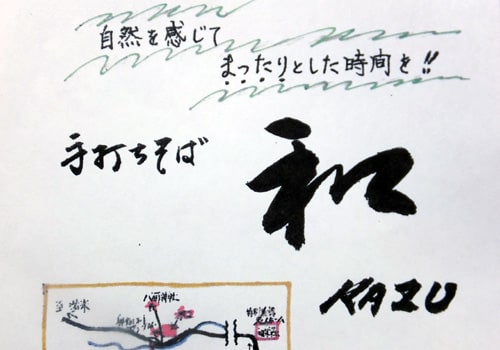 自然を感じて
まったりとした時間を!!
手打ちそば
和
KAZU